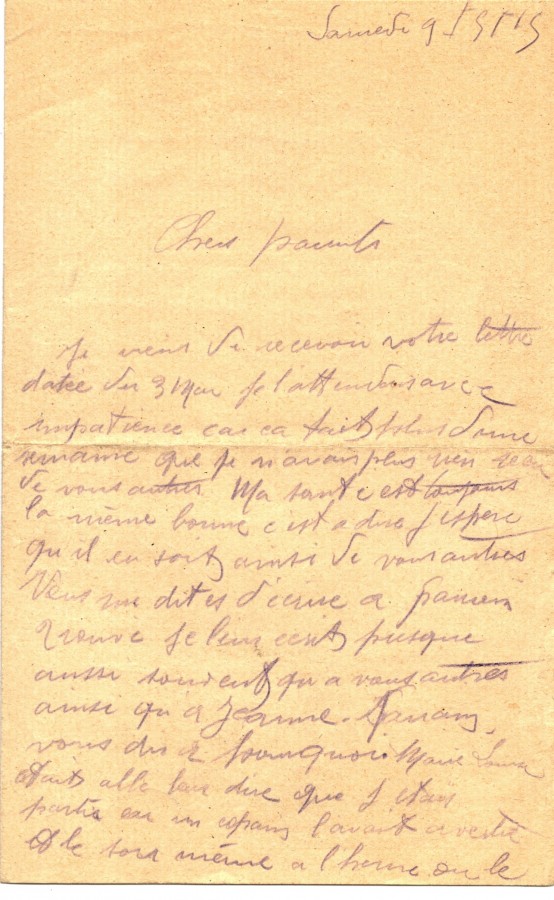 Samedi 9
Chers parents
Je viens de recevoir votre lettre
datee du 3 Mai Je l attendais avec
impatience car ca fait plus d une
semaine que Je n avais plus rien
de vous autres Ma sante est toujours
la même bonne c est a dire J espere
qu il en soit ainsi de vous autres
Vous me dites d ecrire a
Je leur ecrit presque
aussi souvent qu a vous autres
ainsi qu a Jeanne
vous dira pourquoi Marie
etait alle leur dire que J etais
partie car un copain l avait avertie
et le soir même a l heure ou le